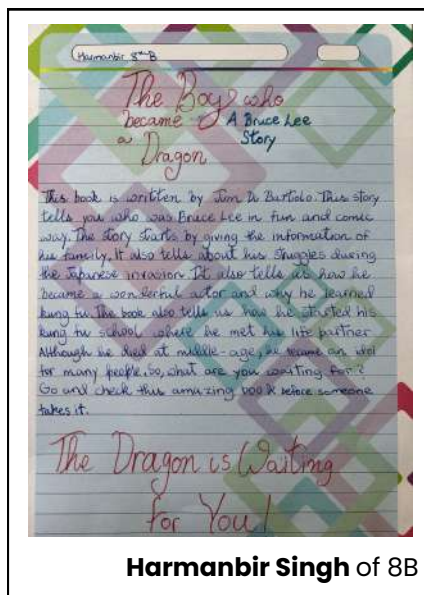 Harmanbir 8th B
The Boy who
became A Bruce Lee
a Story
Dragon
This book is written by Jim Di Bartolo. This story
tells you who was Bruce Lee in fun and comic
way. The story starts by giving the information of
his family. It also tells about his struggles during
the Japanese invasion. It also tells us how he
became a wonderful actor and why he learned
kung fu. The book also tells us how he started his
kung fu school where he met his life partner
Although he died at middle-age, he became an idol
for many people. So, what are you waiting for?
Go and check this amazing book before someone
takes it.
The Dragon is Waiting
for You!
Harmanbir Singh of 8B